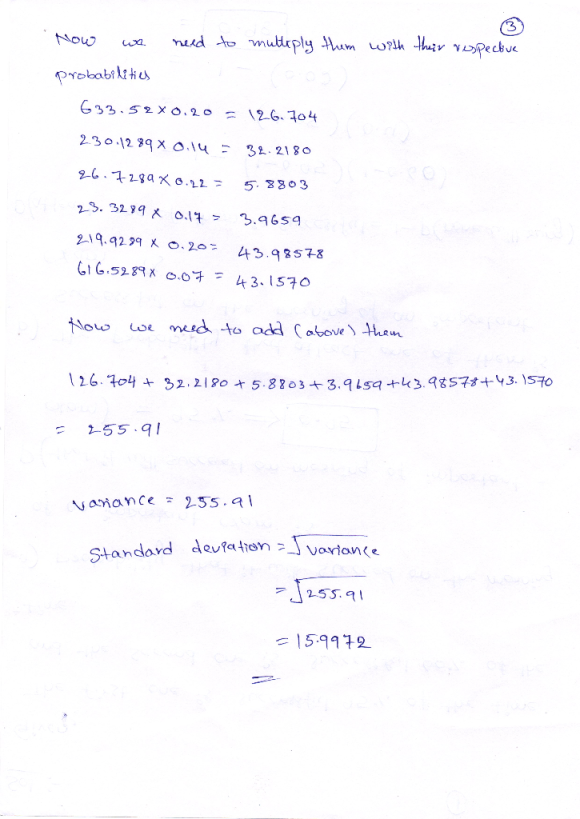 3
Now we need to multeply them with their respective
probabilities
633.52 x 0.20 = 126.704
230.1289 x 0.14 = 32.2180
26.7289 x 0.22 = 5.8803
23.3289 x 0.17 = 3.9659
219.9289 x 0.20 = 43.98578
616.5289 x 0.07 = 43.1570
Now we need to add (above) them
126.704 + 32.2180 + 5.8803 + 3.9659 + 43.98578 + 43.1570
= 255.91
variance = 255.91
Standard deviation = √variance
= √255.91
= 15.9972